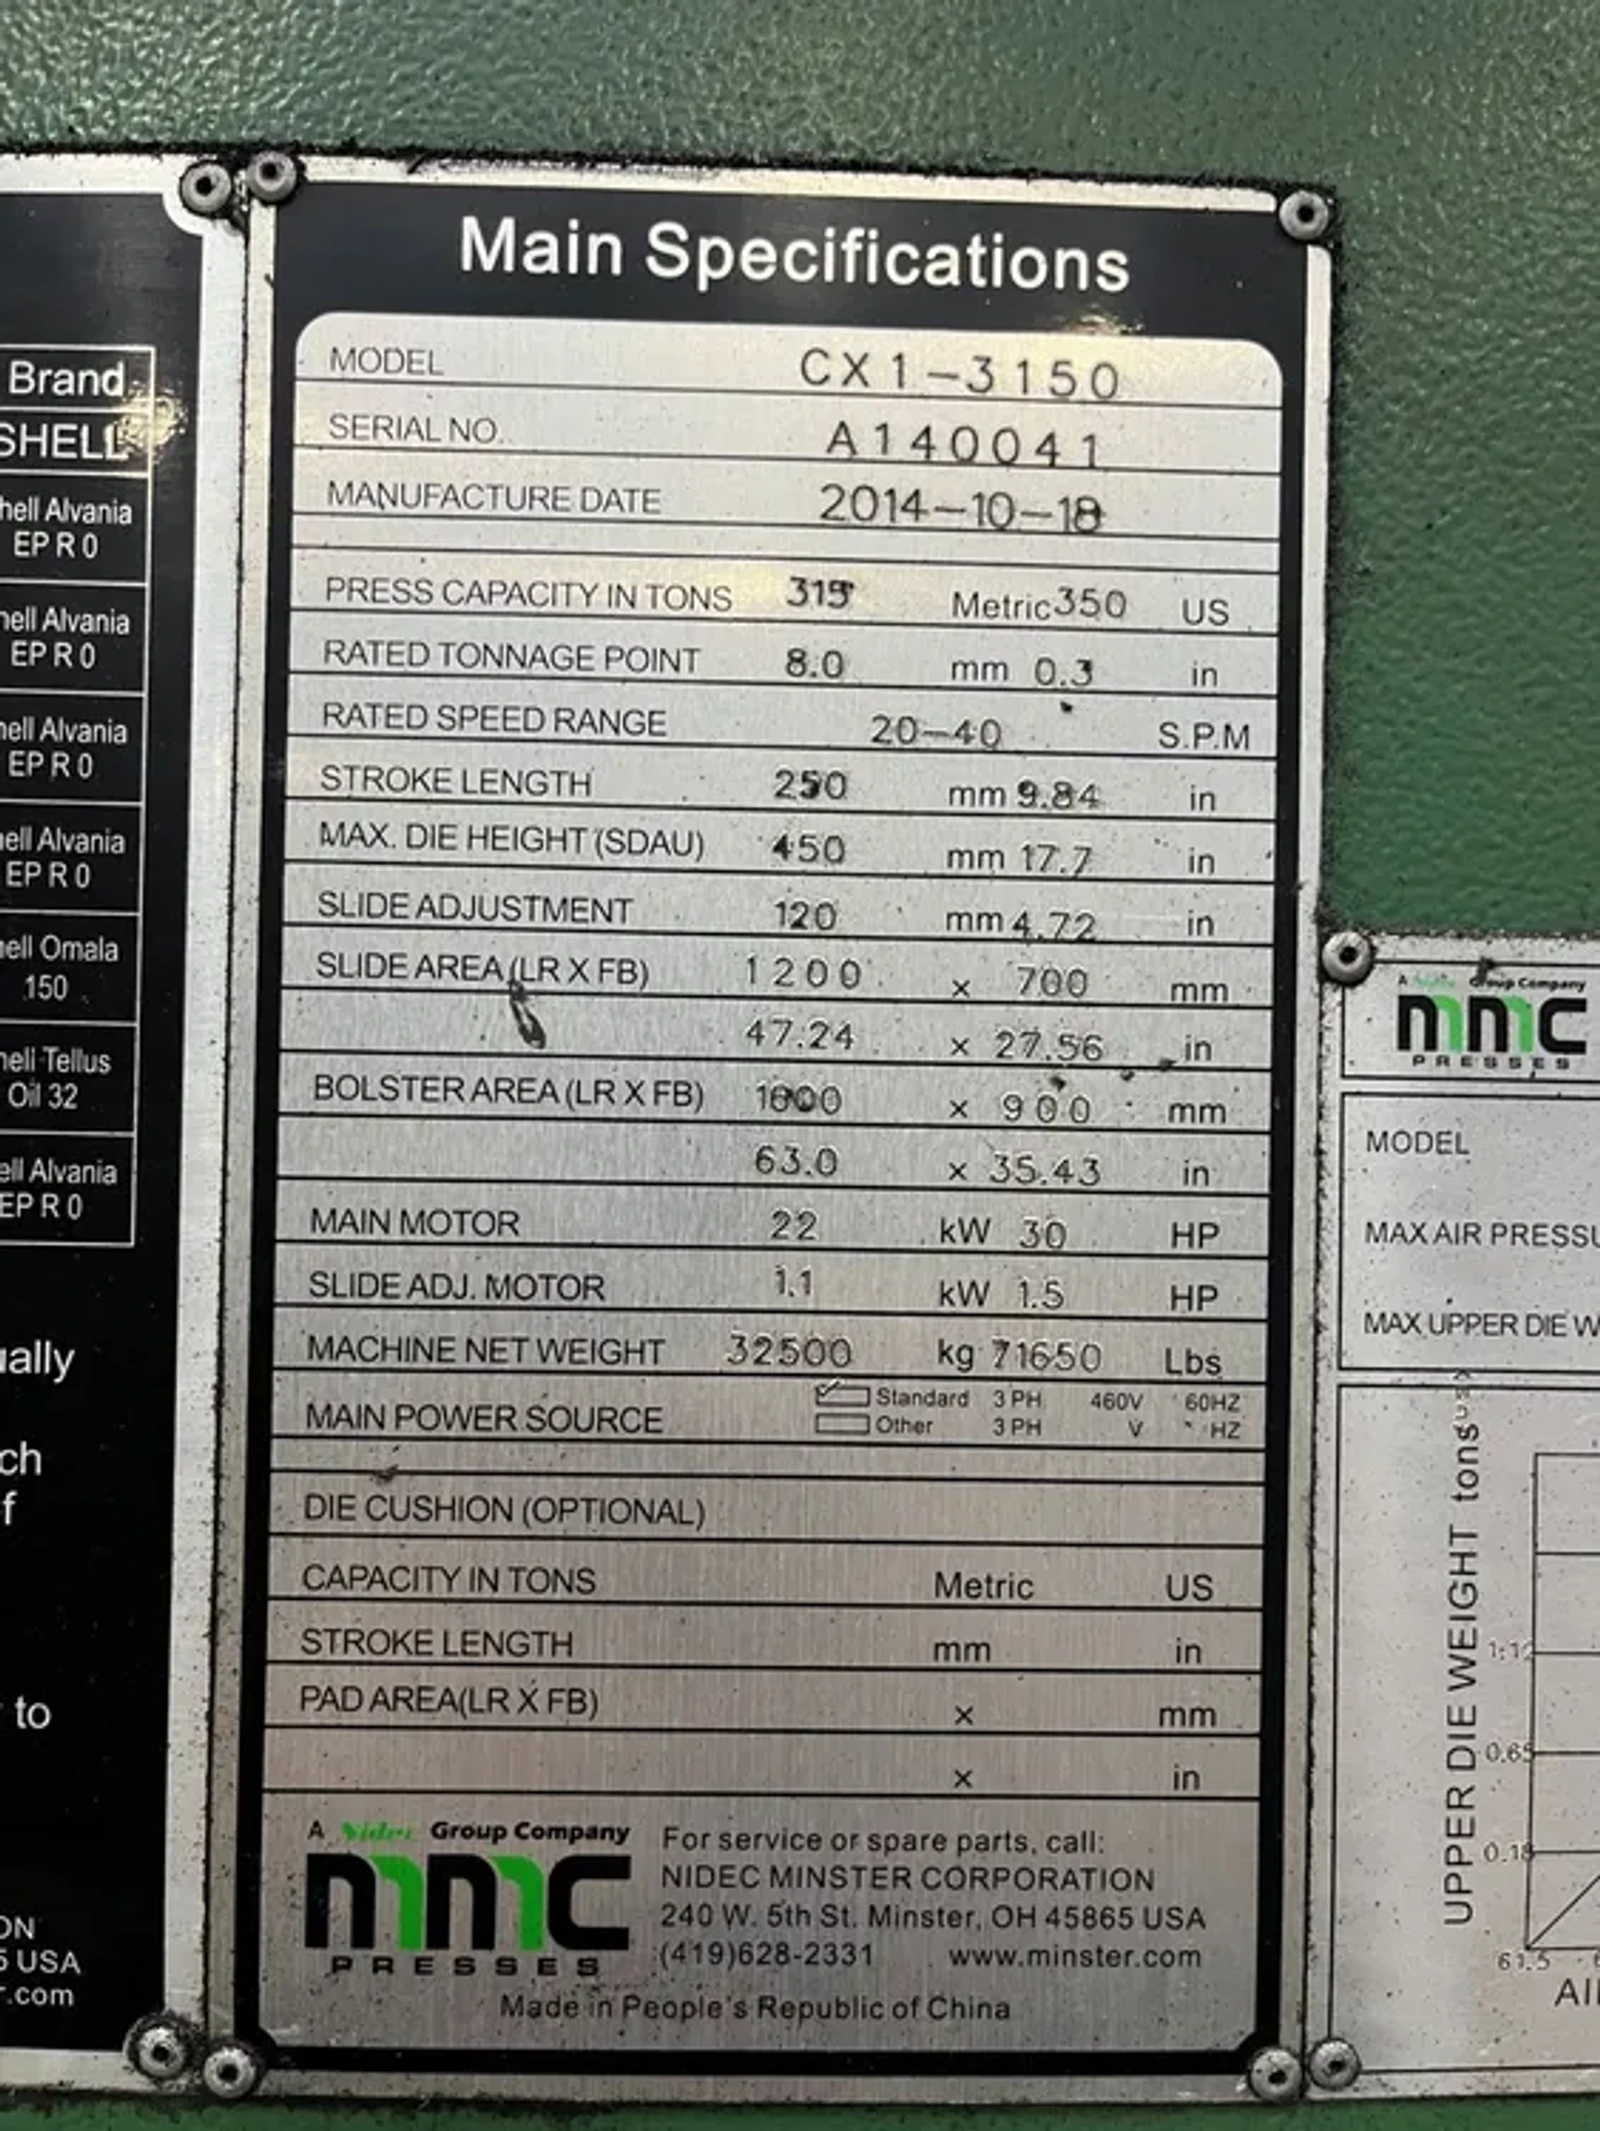 Brand
SHELL
hell Alvania
EP R 0
hell Alvania
EP R 0
hell Alvania
EP R 0
ell Alvania
EP R 0
ell Omala
150
hell Tellus
Oil 32
ell Alvania
EP R 0
ually
ch
of
to
ON
5 USA
r.com
Main Specifications
MODEL CX1-3150
SERIAL NO. A140041
MANUFACTURE DATE 2014-10-18
PRESS CAPACITY IN TONS 315 Metric 350 US
RATED TONNAGE POINT 8.0 mm 0.3 in
RATED SPEED RANGE 20-40 S.P.M
STROKE LENGTH 250 mm 9.84 in
MAX. DIE HEIGHT (SDAU) 450 mm 17.7 in
SLIDE ADJUSTMENT 120 mm 4.72 in
SLIDE AREA (LR X FB) 1200 x 700 mm
47.24 x 27.56 in
BOLSTER AREA (LR X FB) 1600 x 900 mm
63.0 x 35.43 in
MAIN MOTOR 22 kW 30 HP
SLIDE ADJ. MOTOR 1.1 kW 1.5 HP
MACHINE NET WEIGHT 32500 kg 71650 Lbs
MAIN POWER SOURCE
Standard 3 PH 460V 60HZ
Other 3 PH V HZ
DIE CUSHION (OPTIONAL)
CAPACITY IN TONS Metric US
STROKE LENGTH mm in
PAD AREA(LR X FB) x mm
x in
A Nidec Group Company
mmc
PRESSES
For service or spare parts, call:
NIDEC MINSTER CORPORATION
240 W. 5th St. Minster, OH 45865 USA
(419)628-2331 www.minster.com
Made in People's Republic of China
A Nidec Group Company
mmc
PRESSES
MODEL
MAX AIR PRESSU
MAX.UPPER DIE W
UPPER DIE WEIGHT tons(US)
0.65
0.18
61.5
All